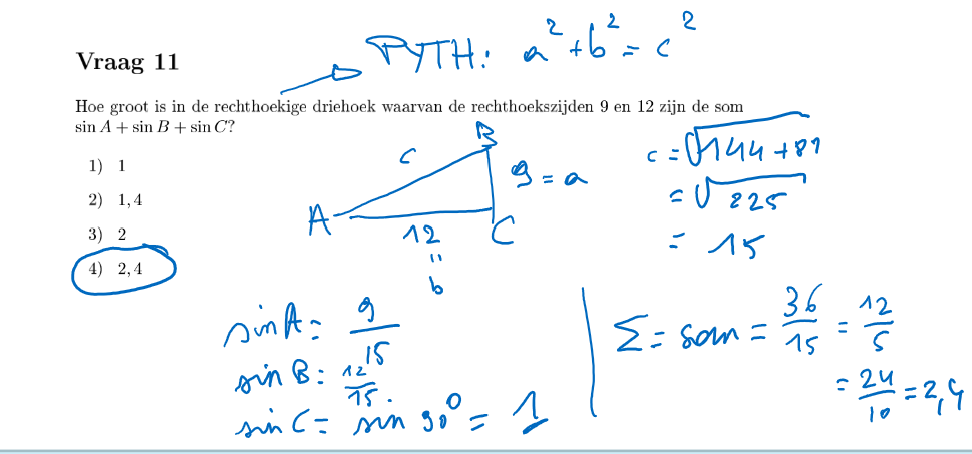 PYTH: a² + b² = c²
Vraag 11
Hoe groot is in de rechthoekige driehoek waarvan de rechthoekszijden 9 en 12 zijn de som
sin A + sin B + sin C?
1) 1
2) 1,4
3) 2
4) 2,4
B
c
9 = a
A
12
C
"
b
c = √144 + 81
= √225
= 15
sin A = 9/15
sin B = 12/15.
sin C = sin 90° = 1
Σ = som = 36/15 = 12/5
= 24/10 = 2,4